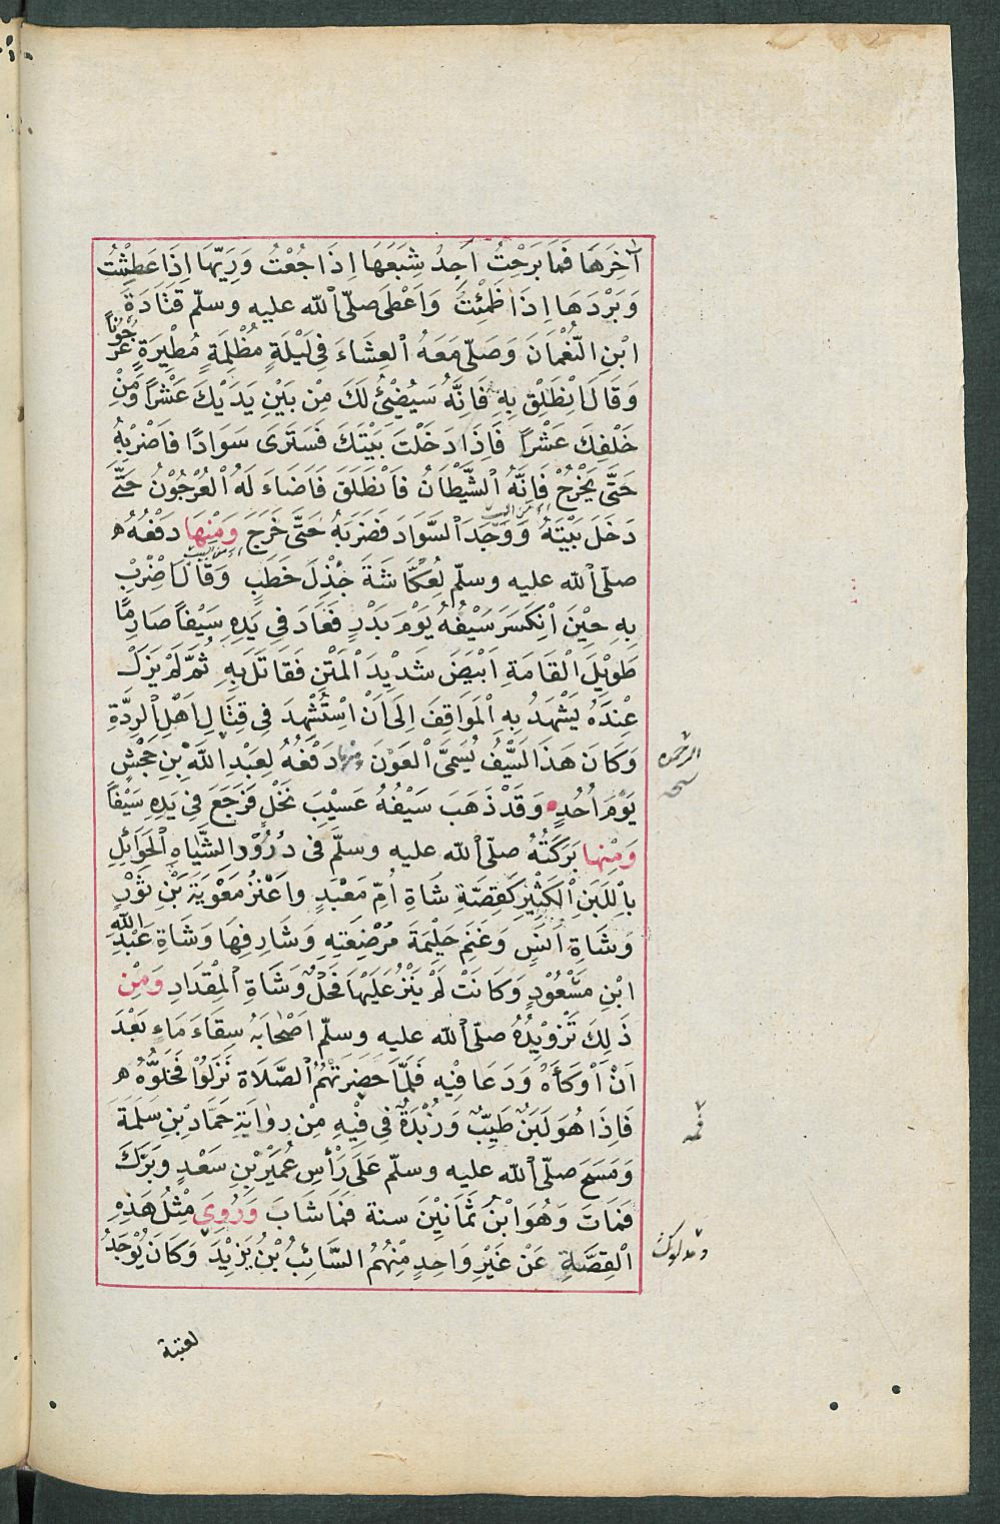 آخِرَهَا فَمَا بَرَحْتُ اَجِدُ شِبَعَهَا اِذَا جُعْتُ وَرِيَّهَا اِذَا عَطِشْتُ
وَبَرْدَهَا اِذَا ظَمِئْتُ وَاَعْطَى صَلَّى اللّٰه عليه وسلّم قَتَادَةَ
ابْنِ النُّعْمَانَ وَصَلَّى مَعَهُ الْعِشَاءَ فِى لَيْلَةٍ مُظْلِمَةٍ مُطِيْرَةٍ عُرْجُونًا
وَقَالَ انْطَلِقْ بِهِ فَاِنَّهُ سَيُضِئُ لَكَ مِنْ بَيْنِ يَدَيْكَ عَشْرًا وَمِنْ
خَلْفِكَ عَشْرًا فَاِذَا دَخَلْتَ بَيْتَكَ فَسَتَرَى سَوَادًا فَاضْرِبْهُ
حَتَّى يَخْرُجَ فَاِنَّهُ الشَّيْطَانُ فَانْطَلَقَ فَاَضَاءَ لَهُ الْعُرْجُوْنُ حَتَّى
دَخَلَ بَيْتَهُ وَوَجَدَ السَّوَادَ فَضَرَبَهُ حَتَّى خَرَجَ وَمِنْهَا دَفْعُهُ
صلّى اللّٰه عليه وسلّم لِعُكَّاشَةَ جِذْلَ حَطَبٍ وَقَالَ اضْرِبْ
بِهِ حِيْنَ انْكَسَرَ سَيْفُهُ يَوْمَ بَدْرٍ فَعَادَ فِى يَدِهِ سَيْفًا صَارِمًا
طَوِيْلَ الْقَامَةِ اَبْيَضَ شَدِيْدَ الْمَتْنِ فَقَاتَلَ بِهِ ثُمَّ لَمْ يَزَلْ
عِنْدَهُ يَشْهَدُ بِهِ الْمَوَاقِفَ اِلَى اَنْ اسْتُشْهِدَ فِى قِتَالِ اَهْلِ الرِّدَّةِ
وَكَانَ هَذَا السَّيْفُ يُسَمَّى الْعَوْنَ ومنها دَفْعُهُ لِعَبْدِ اللّٰهِ بْنِ جَحْشٍ
يَوْمَ اُحُدٍ وَقَدْ ذَهَبَ سَيْفُهُ عَسِيْبَ نَخْلٍ فَرَجَعَ فِى يَدِهِ سَيْفًا
وَمِنْها بَرَكَتُهُ صلّى اللّٰه عليه وسلّم فى دُرُوْرِ الشِّيَاهِ الْحَوَائِلِ
بِاللَّبَنِ الْكَثِيْرِ كَقِصَّةِ شَاةِ اُمِّ مَعْبَدٍ وَاَعْنُزِ مُعٰوِيَةَ بْنِ ثَوْرٍ
وَشَاةِ اَنَسٍ وَغَنَمِ حَلِيْمَةَ مُرْضِعَتِهِ وَشَارِفِهَا وَشَاةِ عَبْدِ اللّٰهِ
ابْنِ مَسْعُوْدٍ وَكَانَتْ لَمْ يَنْزُ عَلَيْهَا فَحْلٌ وَشَاةِ الْمِقْدَادِ وَمِنْ
ذَلِكَ تَزْوِيْدُهُ صلّى اللّٰه عليه وسلّم اَصْحَابَهُ سِقَاءَ مَاءٍ بَعْدَ
اَنْ اَوْكَأَهُ وَدَعَا فِيْهِ فَلَمَّا حَضَرَتْهُمُ الصَّلَاة نَزَلُوْا فَحَلُّوْهُ
فَاِذَا هُوَ لَبَنٌ طَيِّبٌ وَزُبْدَةٌ فِى فِيْهِ مِنْ رِوَايَةِ حَمَّادِ بْنِ سَلَمَةَ
وَمَسَحَ صلّى اللّٰه عليه وسلّم عَلَى رَأْسِ عُمَيْرِ بْنِ سَعْدٍ وَبَرَّكَ
فَمَاتَ وَهُوَ ابْنُ ثَمَانِيْنَ سنة فَمَا شَابَ وَرُوِىَ مِثْلُ هَذِهِ
الْقِصَّةِ عَنْ غَيْرِ وَاحِدٍ مِنْهُمُ السَّائِبُ بْنُ يَزِيْدَ وَكَانَ يُوْجَدُ
لعتبة